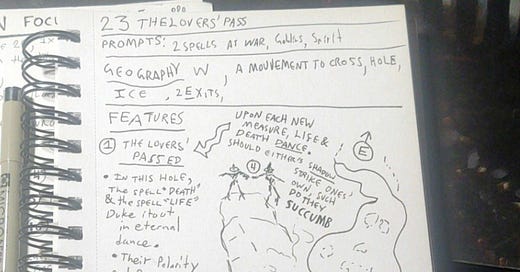 N FOCI
23 THE LOVERS' PASS
PROMPTS: 2 SPELLS AT WAR, GOBLINS, SPIRIT
GEOGRAPHY W, A MOUVEMENT TO CROSS, HOLE,
ICE, 2 EXITS,
FEATURES
① THE LOVERS'
PASSED
• IN THIS HOLE,
The SPELL "DEATH"
& the SPELL "LIFE"
Duke it out
in eternal
dance.
• Their Polarity
UPON EACH NEW
MEASURE, LIFE &
DEATH DANCE.
SHOULD EITHER'S SHADOW
STRIKE ONES'
OWN, SUCH
DO THEY
SUCCUMB
4
E
MICRON